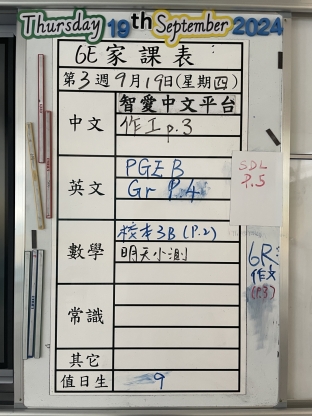 Thursday 19th September 2024
6E家課表:
第3週9月19日(星期四)
中文
智愛中文平台
作工p.3
英文
PGE B
Gr P.4
SDL
P.5
數學
校本3B (P.2)
明天小測
6R:
作文
(P.3)
常識
其它
值日生
9